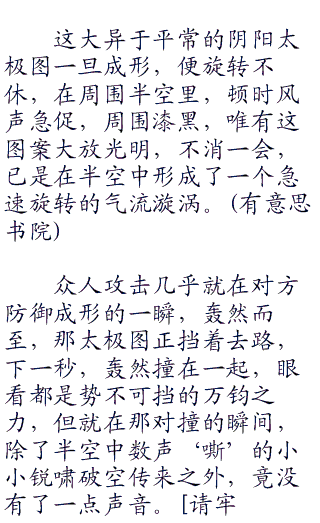 这大异于平常的阴阳太
极图一旦成形，便旋转不
休，在周围半空里，顿时风
声急促，周围漆黑，唯有这
图案大放光明，不消一会，
已是在半空中形成了一个急
速旋转的气流漩涡。(有意思
书院)
众人攻击几乎就在对方
防御成形的一瞬，轰然而
至，那太极图正挡着去路，
下一秒，轰然撞在一起，眼
看都是势不可挡的万钧之
力，但就在那对撞的瞬间，
除了半空中数声‘嘶’的小
小锐啸破空传来之外，竟没
有了一点声音。[请牢